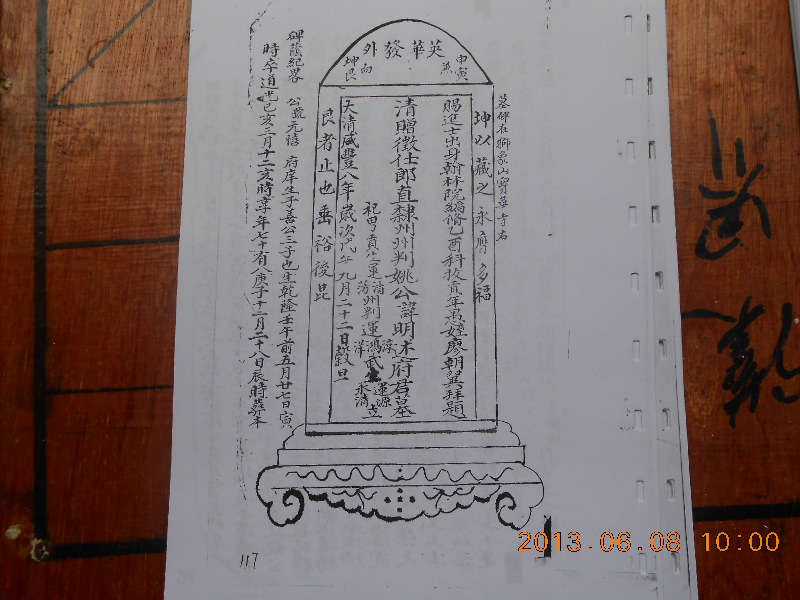 墓碑在獅象山寶華寺右
英華發外
申寅
兼
坤艮
向
坤以藏之永膺多福
賜進士出身翰林院編脩乙酉科拔貢年愚姪廖朝翼拜題
清贈徵仕郎直隸州州判姚公諱明术府君墓
祀男貢生運
清
州判運
鴻
武生
運源
永清
立
大清咸豐八年歲次戊午九月二十二日穀旦
艮者止也垂裕後昆
碑蔭紀畧 公號元禧 府庠生子善公三子也生乾隆壬午前五月廿七日寅
時卒道光己亥三月十二亥時享年七十有八庚子十二月二十八日辰時葬本
117
2013.06.08 10:00